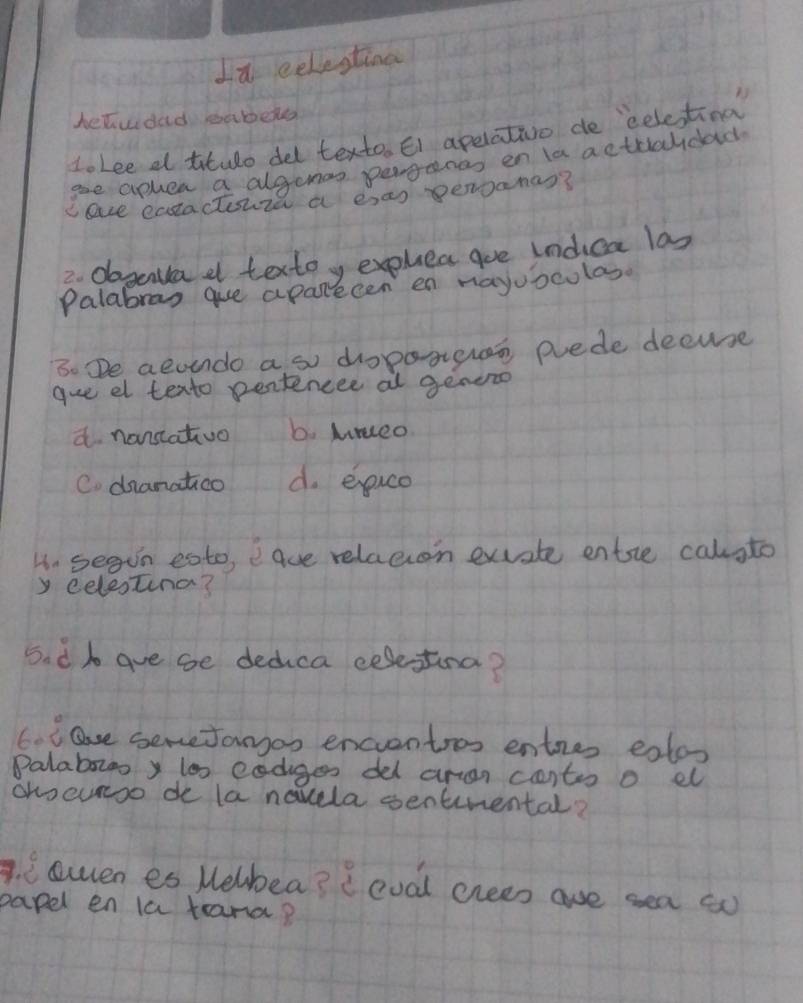 La celestina
Actividad saberes
1. Lee el titulo del texto. El apelativo de "celestina"
se aplica a algunas personas en la actualidad
¿Que caracteriza a esas personas?
2. Observa el texto y explica que indica las
Palabras que aparecen en mayúsculas.
3. De acuerdo a su disposición puede decirse
que el texto pertenece al género
a. narrativo b. lirico
c. dramatico d. épico
4. según esto, ¿que relacion existe entre calisto
y celestina?
5. ¿A que se dedica celestina?
6. ¿Que semejanzas encuentras entres estas
Palabras y los codigos del amor cortes o el
discurso de la novela sentimental?
7. ¿Quien es Melibea? ¿cuál crees que sea su
papel en la trama?